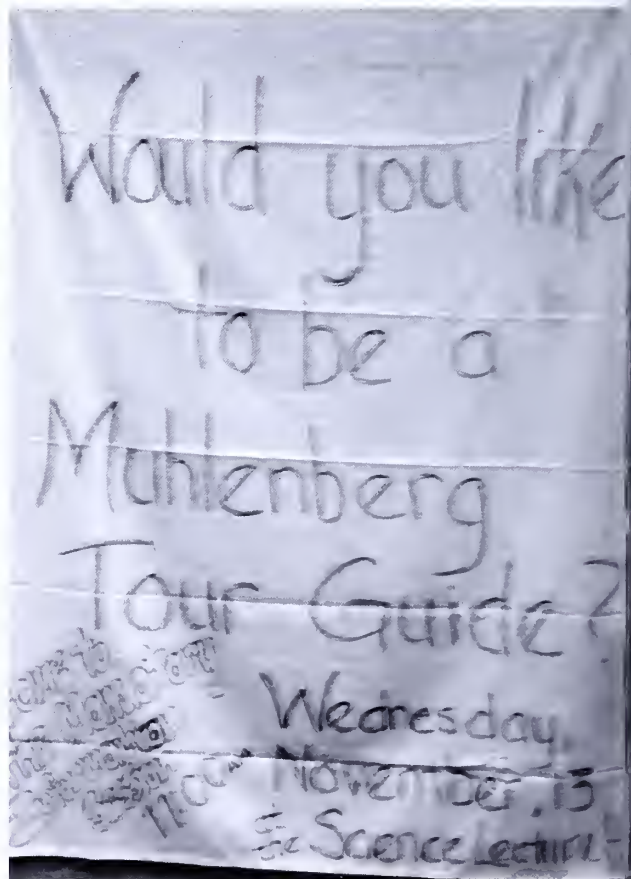 Would you like
to be a
Muhlenberg
Tour Guide?
Wednesday,
November, 15
Science Lecture
Come to
11:00